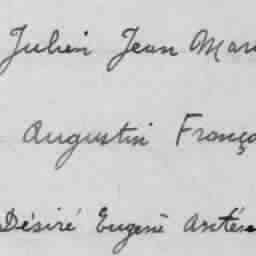 Julien Jean Mari
Augustin Franço
Désiré Eugène Antén